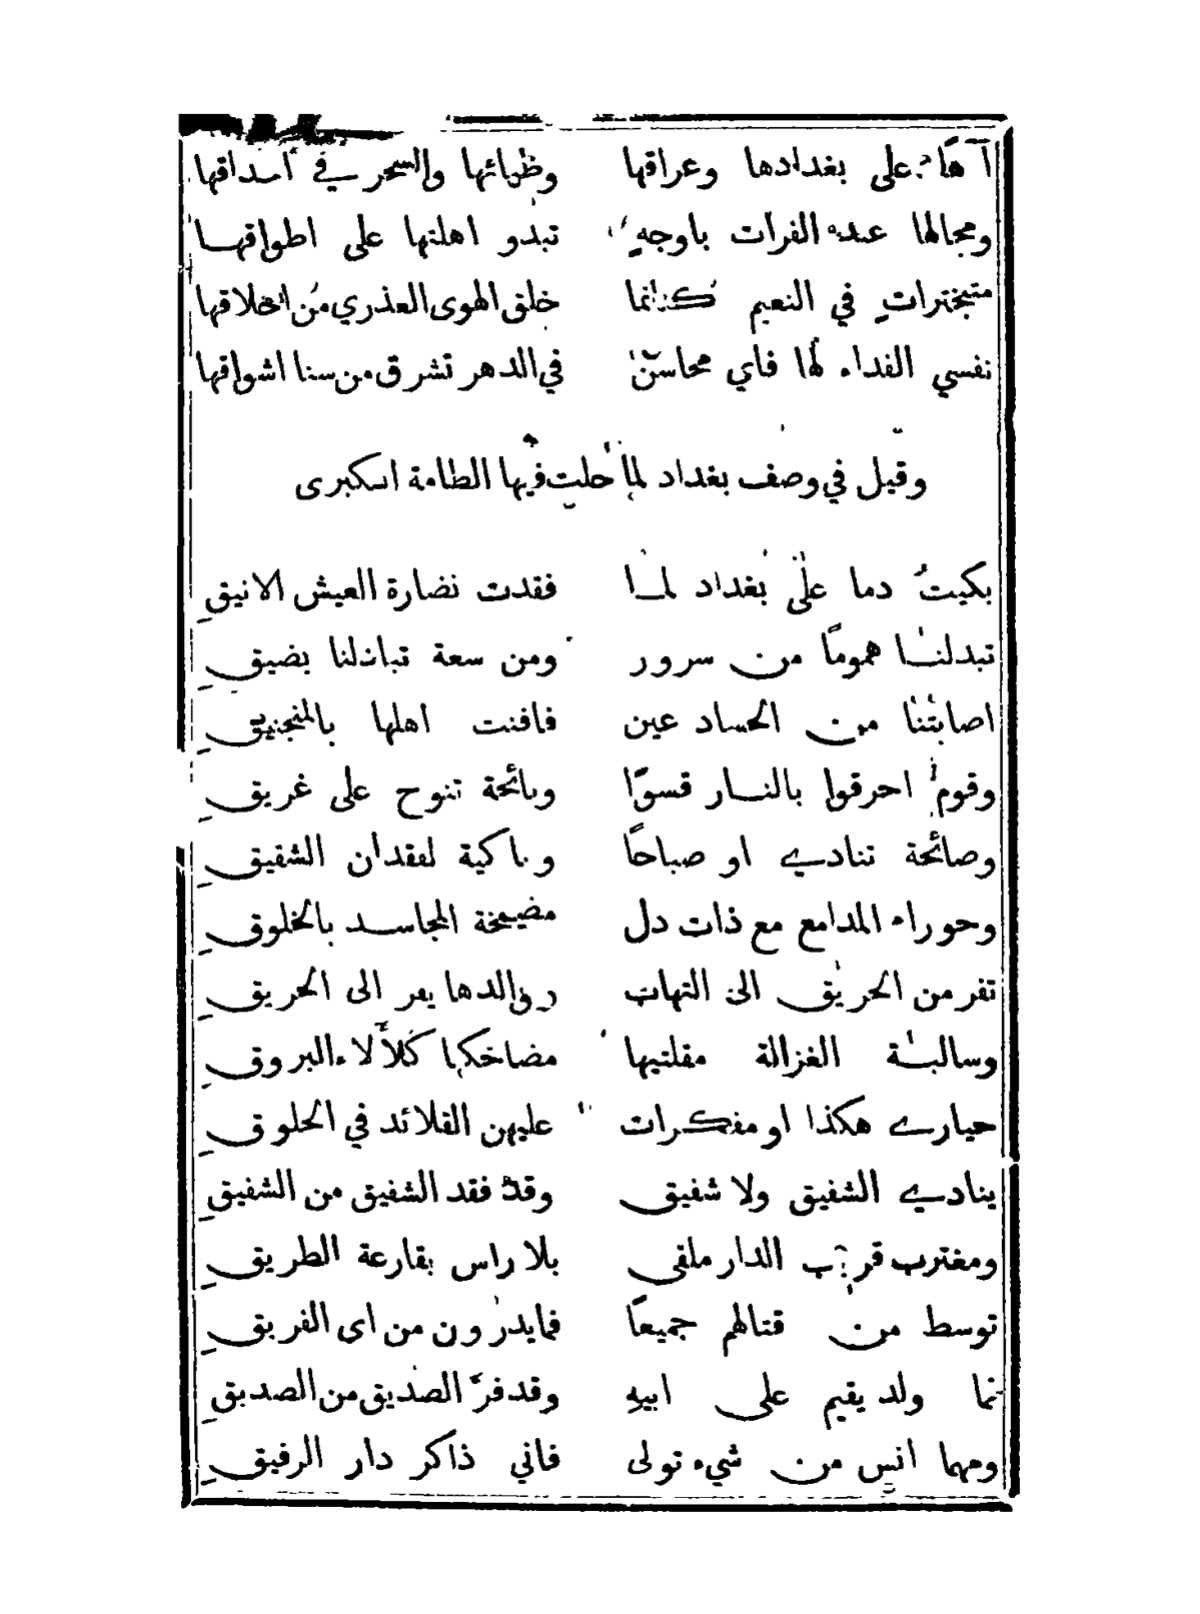 آهًا على بغدادها وعراقها وظبائها والسحر في احداقها
ومجالها عند الفرات باوجهٍ تبدو اهلتها على اطواقهـا
متبخترات في النعيم كـانما خلق الهوى العذري من اخلاقها
نفسي الفداء لها فاي محاسن في الدهر تشرق من سنا اشواقها
وقيل في وصف بغداد لما حلت فيها الطامة الكبرى
بكيتُ دما على بغداد لمـا فقدت نضارة العيش الانيقِ
تبدلنـا همومًا من سرور ومن سعة تباذلنا بضيقِ
اصابتنا من الحساد عين فافنت اهلها بالمنجنيقِ
وقوم احرقوا بالنـار قسوًا ونائحة تنوح على غريقِ
وصائحة تنادي او صباحًا وباكية لفقدان الشقيقِ
وحوراء المدامع مع ذات دل مضمخة المجاسـد بالخلوقِ
تفر من الحريق الى التهاب ووالدها يفر الى الحريقِ
وسالبـة الغزالة مقلتيها مضاحكها كلألاء البروقِ
حيارى هكذا او مفكرات عليهن القلائد في الحلوقِ
ينادي الشفيق ولا شفيق وقد فقد الشفيق من الشفيقِ
ومغترب قريب الدار ملقى بلا راس بقارعة الطريقِ
توسط من قتالهم جميعًا فما يدرون من اى الفريقِ
فما ولد يقيم على ابيهِ وقد فرّ الصديق من الصديقِ
ومهما انس من شيء تولى فاني ذاكر دار الرفيقِ